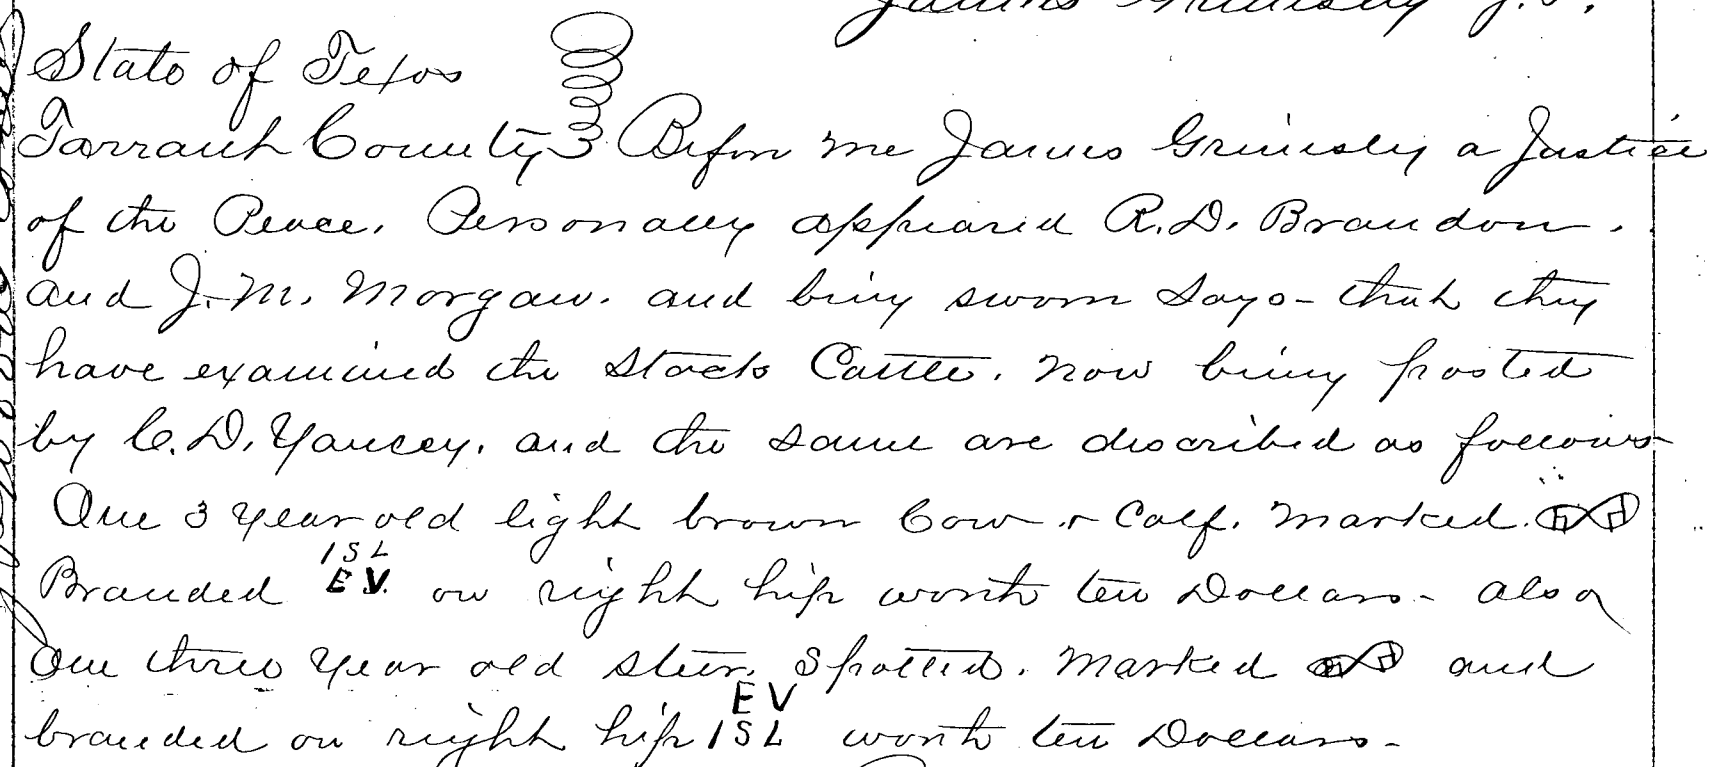 James Grimsley J.P.
State of Texas
Tarrant County } Before me James Grimsley a Justice
of the Peace. Personally appeared R.D. Brandon.
and J.M. Morgan. and being sworn says - that they
have examined the stock Cattle. now being posted
by C.D. Yancey. and the same are described as follows
One 3 year old light brown Cow & Calf. Marked.
1SL
Branded EV. on right hip worth ten Dollars - also
One three year old steer. Spotted. Marked and
EV
branded on right hip 1SL worth ten Dollars -